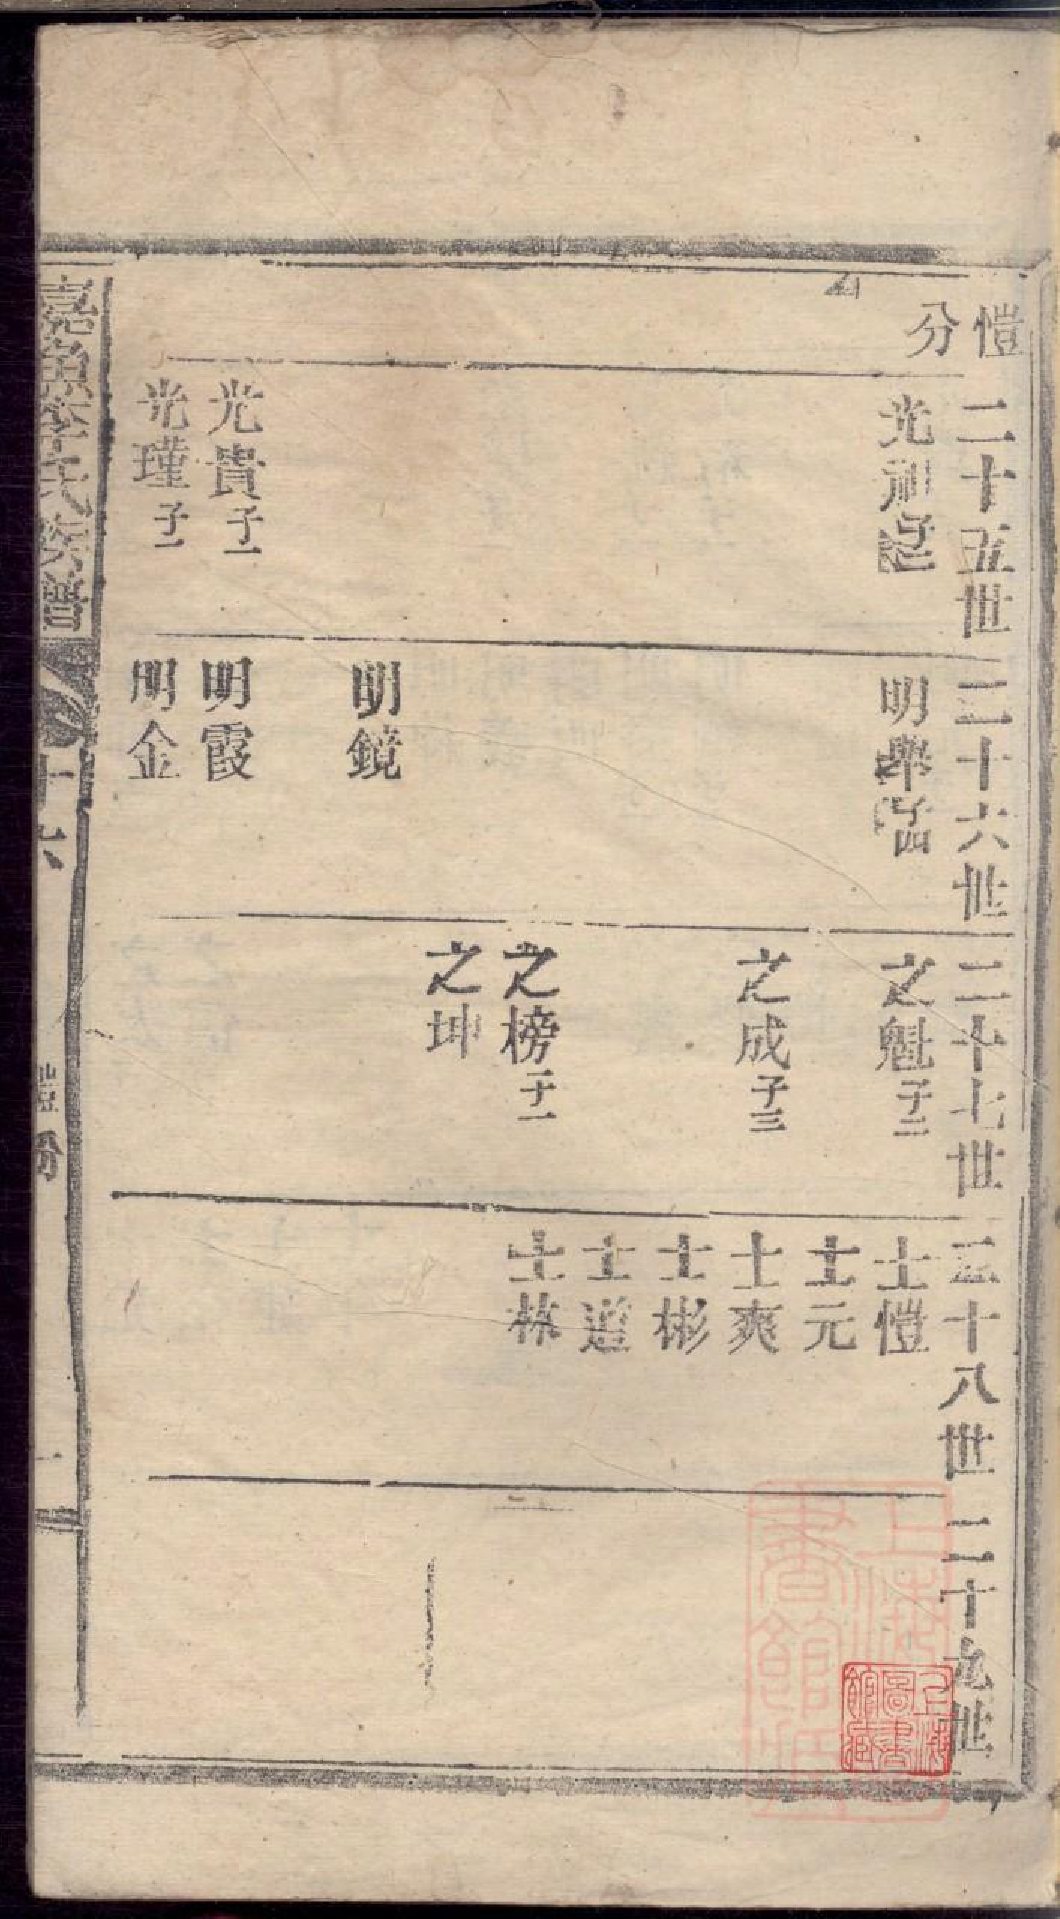 愷分
二十五世
二十六世
二十七世
二十八世
二十九世
光 子二
明舉子四
之魁子二
士愷
士元
之成子三
士爽
士彬
士道
之榜子一
士林
之坤
明鏡
光貴子一
明霞
光瑾子一
明金
嘉魚李氏族譜
十六
愷分
上海圖書館藏
上海圖書館藏